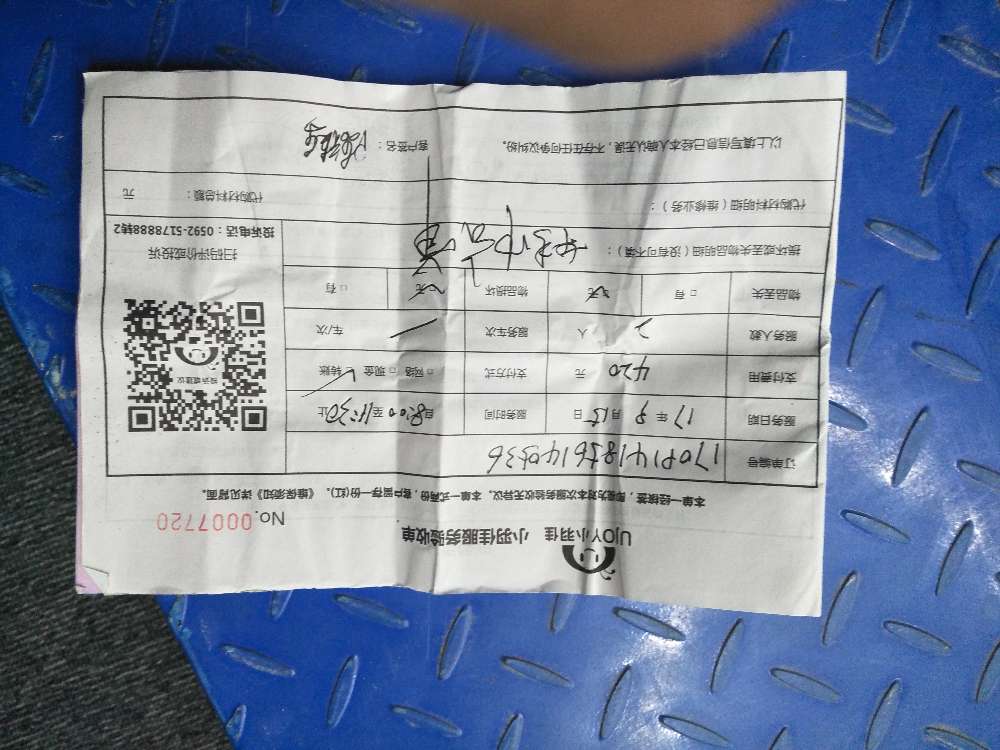 UJOY小羽佳 小羽佳服务验收单
No.0007720
本单一经接签，即视为对本次服务验收无异议。本单一式两份，客户留存一份(红)。《维保须知》详见背面。
订单编号
服务日期 17年9月15日 服务时间 自8:00至11:30止
支付费用 420元 支付方式 □网络 □现金 □转账
服务人数 2人 服务车次 车/次
物品丢失 □有 □无 物品损坏 □有 □无
损坏或丢失物品明细（没有可不填）：
代购材料明细（维修业务）：
代购材料总额： 元
以上填写信息已经本人确认无误，不存在任何争议纠纷。
客户签名：
投诉或建议
扫码评价或投诉
投诉电话：0592-5178888转2